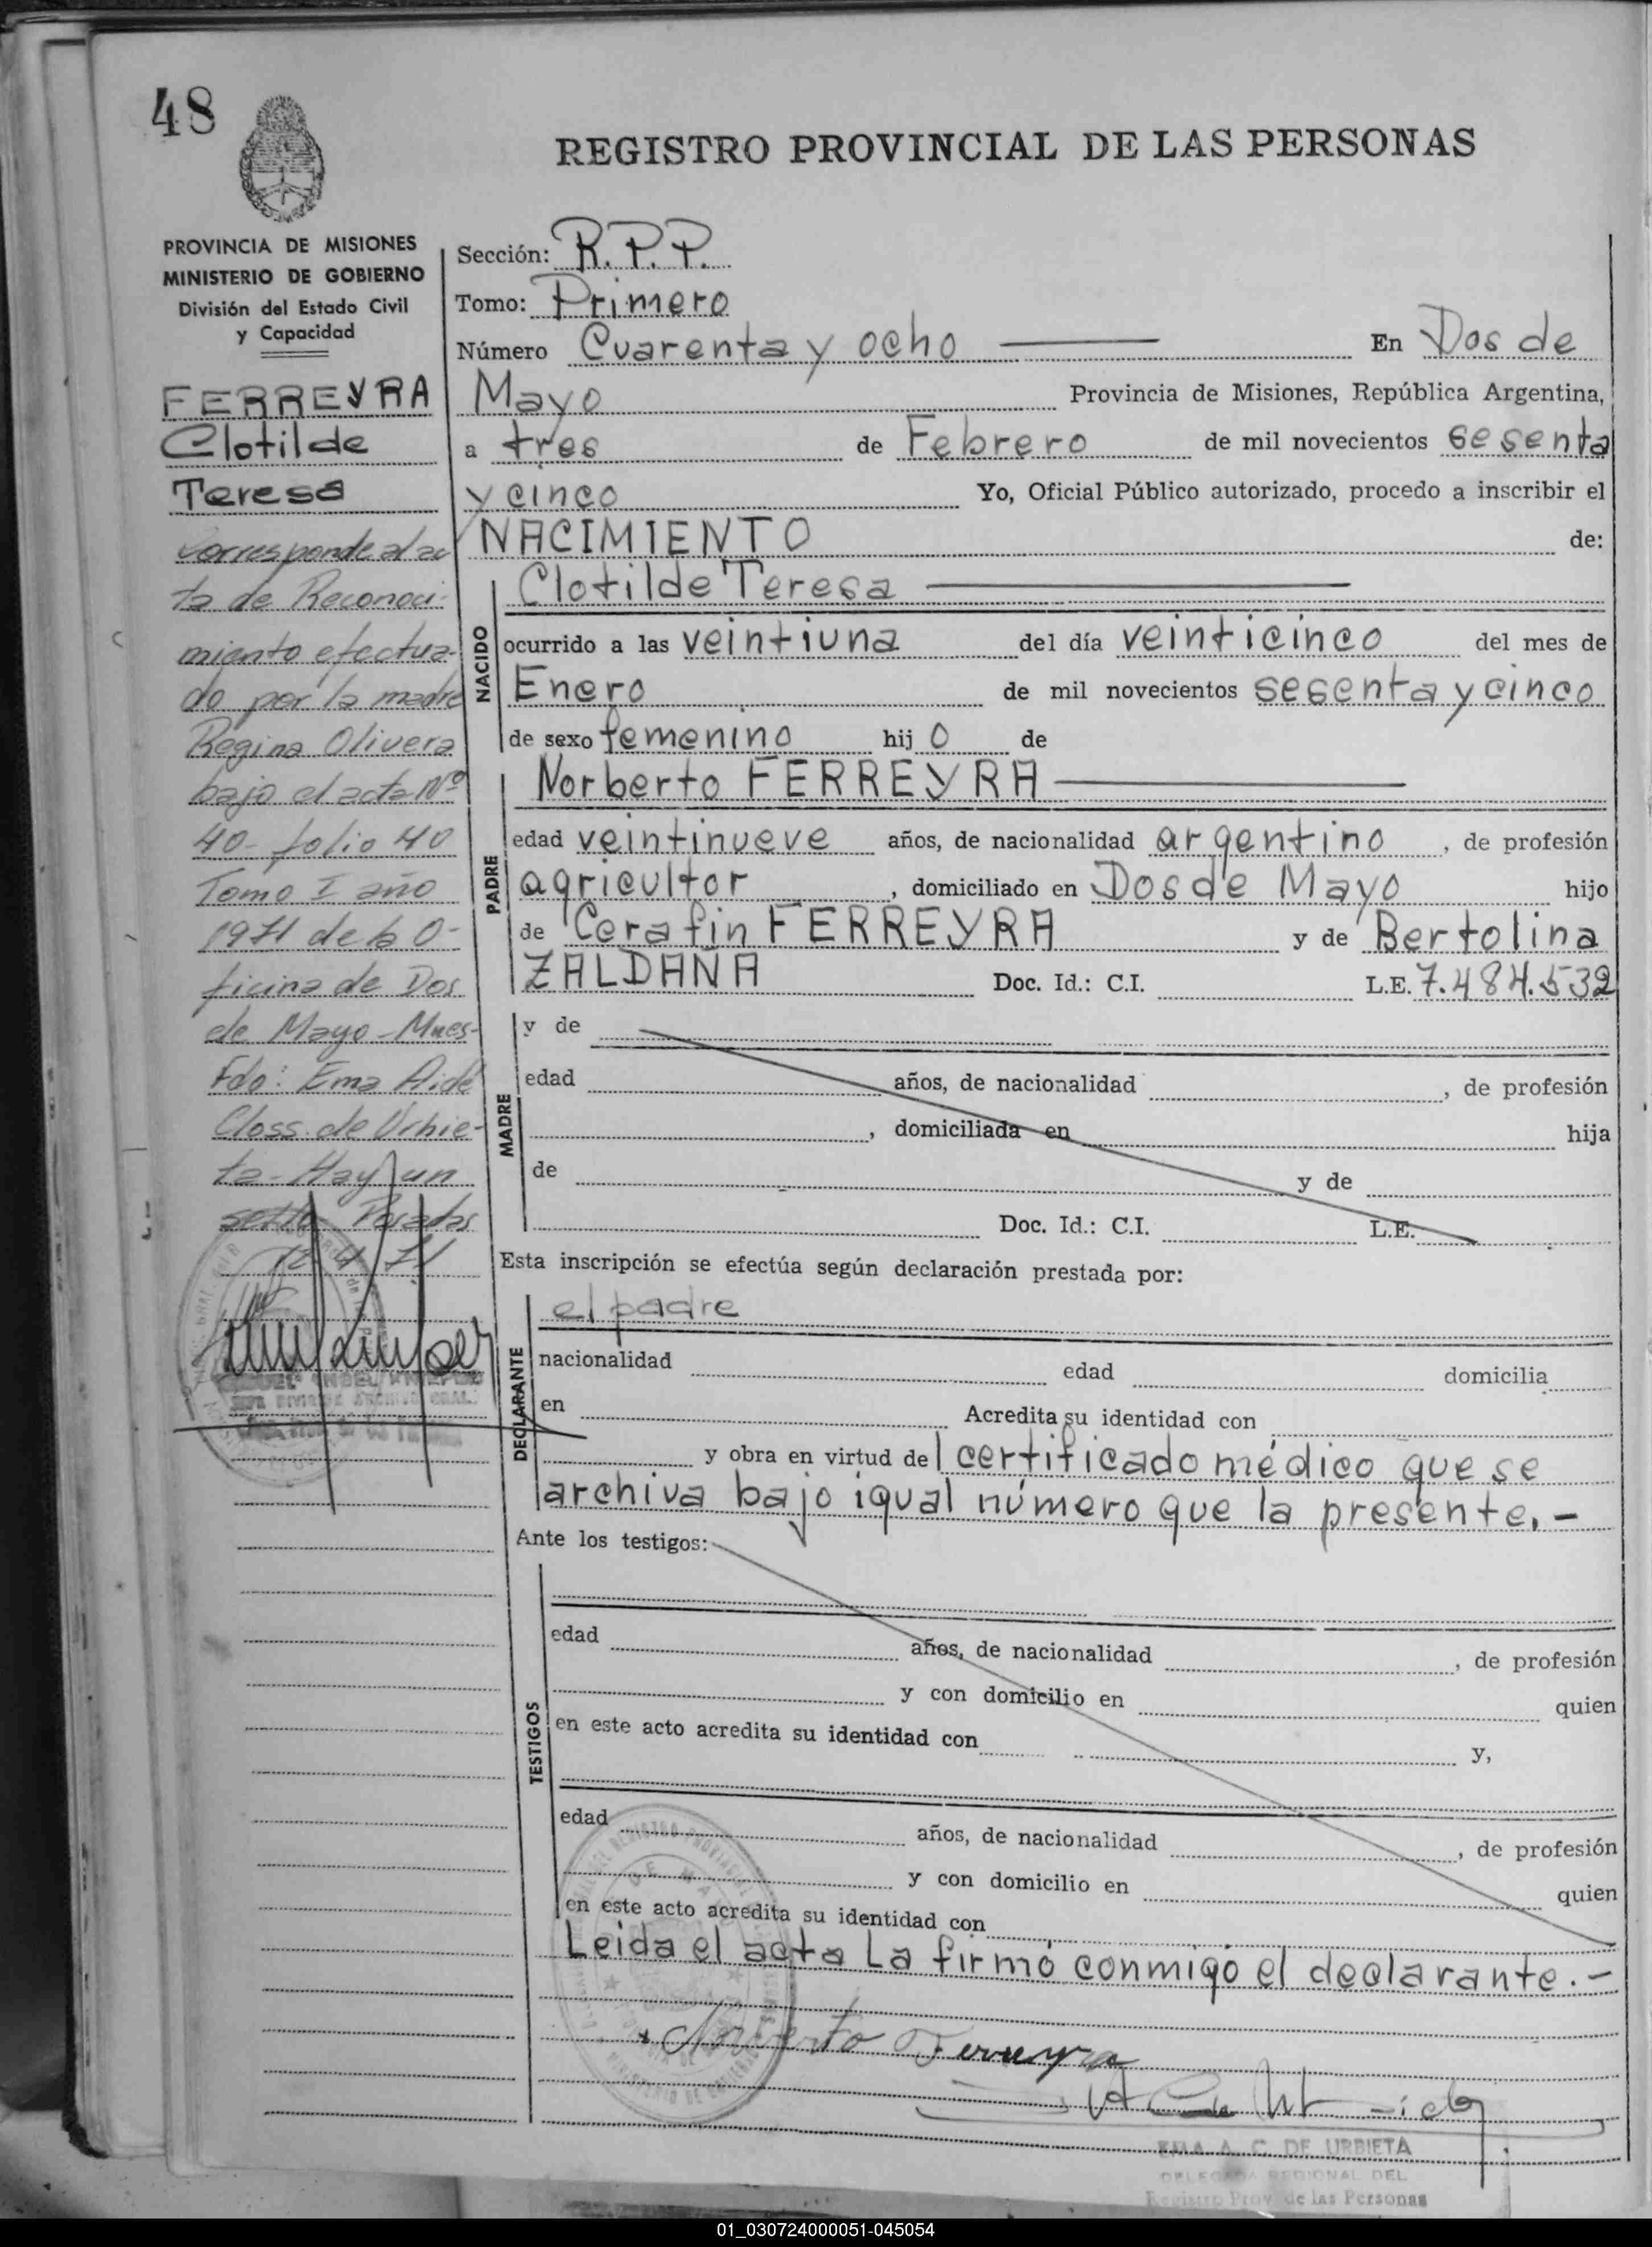 48
REGISTRO PROVINCIAL DE LAS PERSONAS
PROVINCIA DE MISIONES
MINISTERIO DE GOBIERNO
División del Estado Civil
y Capacidad
FERREYRA
Clotilde
Teresa
Corresponde al ac
ta de Reconoci-
miento efectua-
do por la madre
Regina Olivera
bajo el acta Nº
40- folio 40
Tomo I año
1971 de la O-
ficina de Dos
de Mayo - Mnes-
Fdo: Ema Aidé
Closs de Urbie-
ta - Hay un
sello Posadas
12 4 71
Sección: R.P.P.
Tomo: Primero
Número Cuarenta y ocho En Dos de
Mayo Provincia de Misiones, República Argentina,
a tres de Febrero de mil novecientos sesenta
y cinco Yo, Oficial Público autorizado, procedo a inscribir el
NACIMIENTO de:
NACIDO
Clotilde Teresa
ocurrido a las veintiuna del día veinticinco del mes de
Enero de mil novecientos sesenta y cinco
de sexo femenino hij o de
PADRE
Norberto FERREYRA
edad veintinueve años, de nacionalidad argentino, de profesión
agricultor, domiciliado en Dos de Mayo hijo
de Cerafin FERREYRA y de Bertolina
ZALDAÑA Doc. Id.: C.I. L.E. 7.484.532
MADRE
y de
edad años, de nacionalidad , de profesión
, domiciliada en hija
de y de
Doc. Id.: C.I. L.E.
Esta inscripción se efectúa según declaración prestada por:
DECLARANTE
el padre
nacionalidad edad domicilia
en Acredita su identidad con
y obra en virtud del certificado médico que se
archiva bajo igual número que la presente.-
Ante los testigos:
TESTIGOS
edad años, de nacionalidad , de profesión
y con domicilio en quien
en este acto acredita su identidad con y,
edad años, de nacionalidad , de profesión
y con domicilio en quien
en este acto acredita su identidad con
Leida el acta La firmó conmigo el declarante.-
Norberto Ferreyra
EMA A. C. DE URBIETA
DELEGADA REGIONAL DEL
Registro Prov de las Personas
01_030724000051-045054